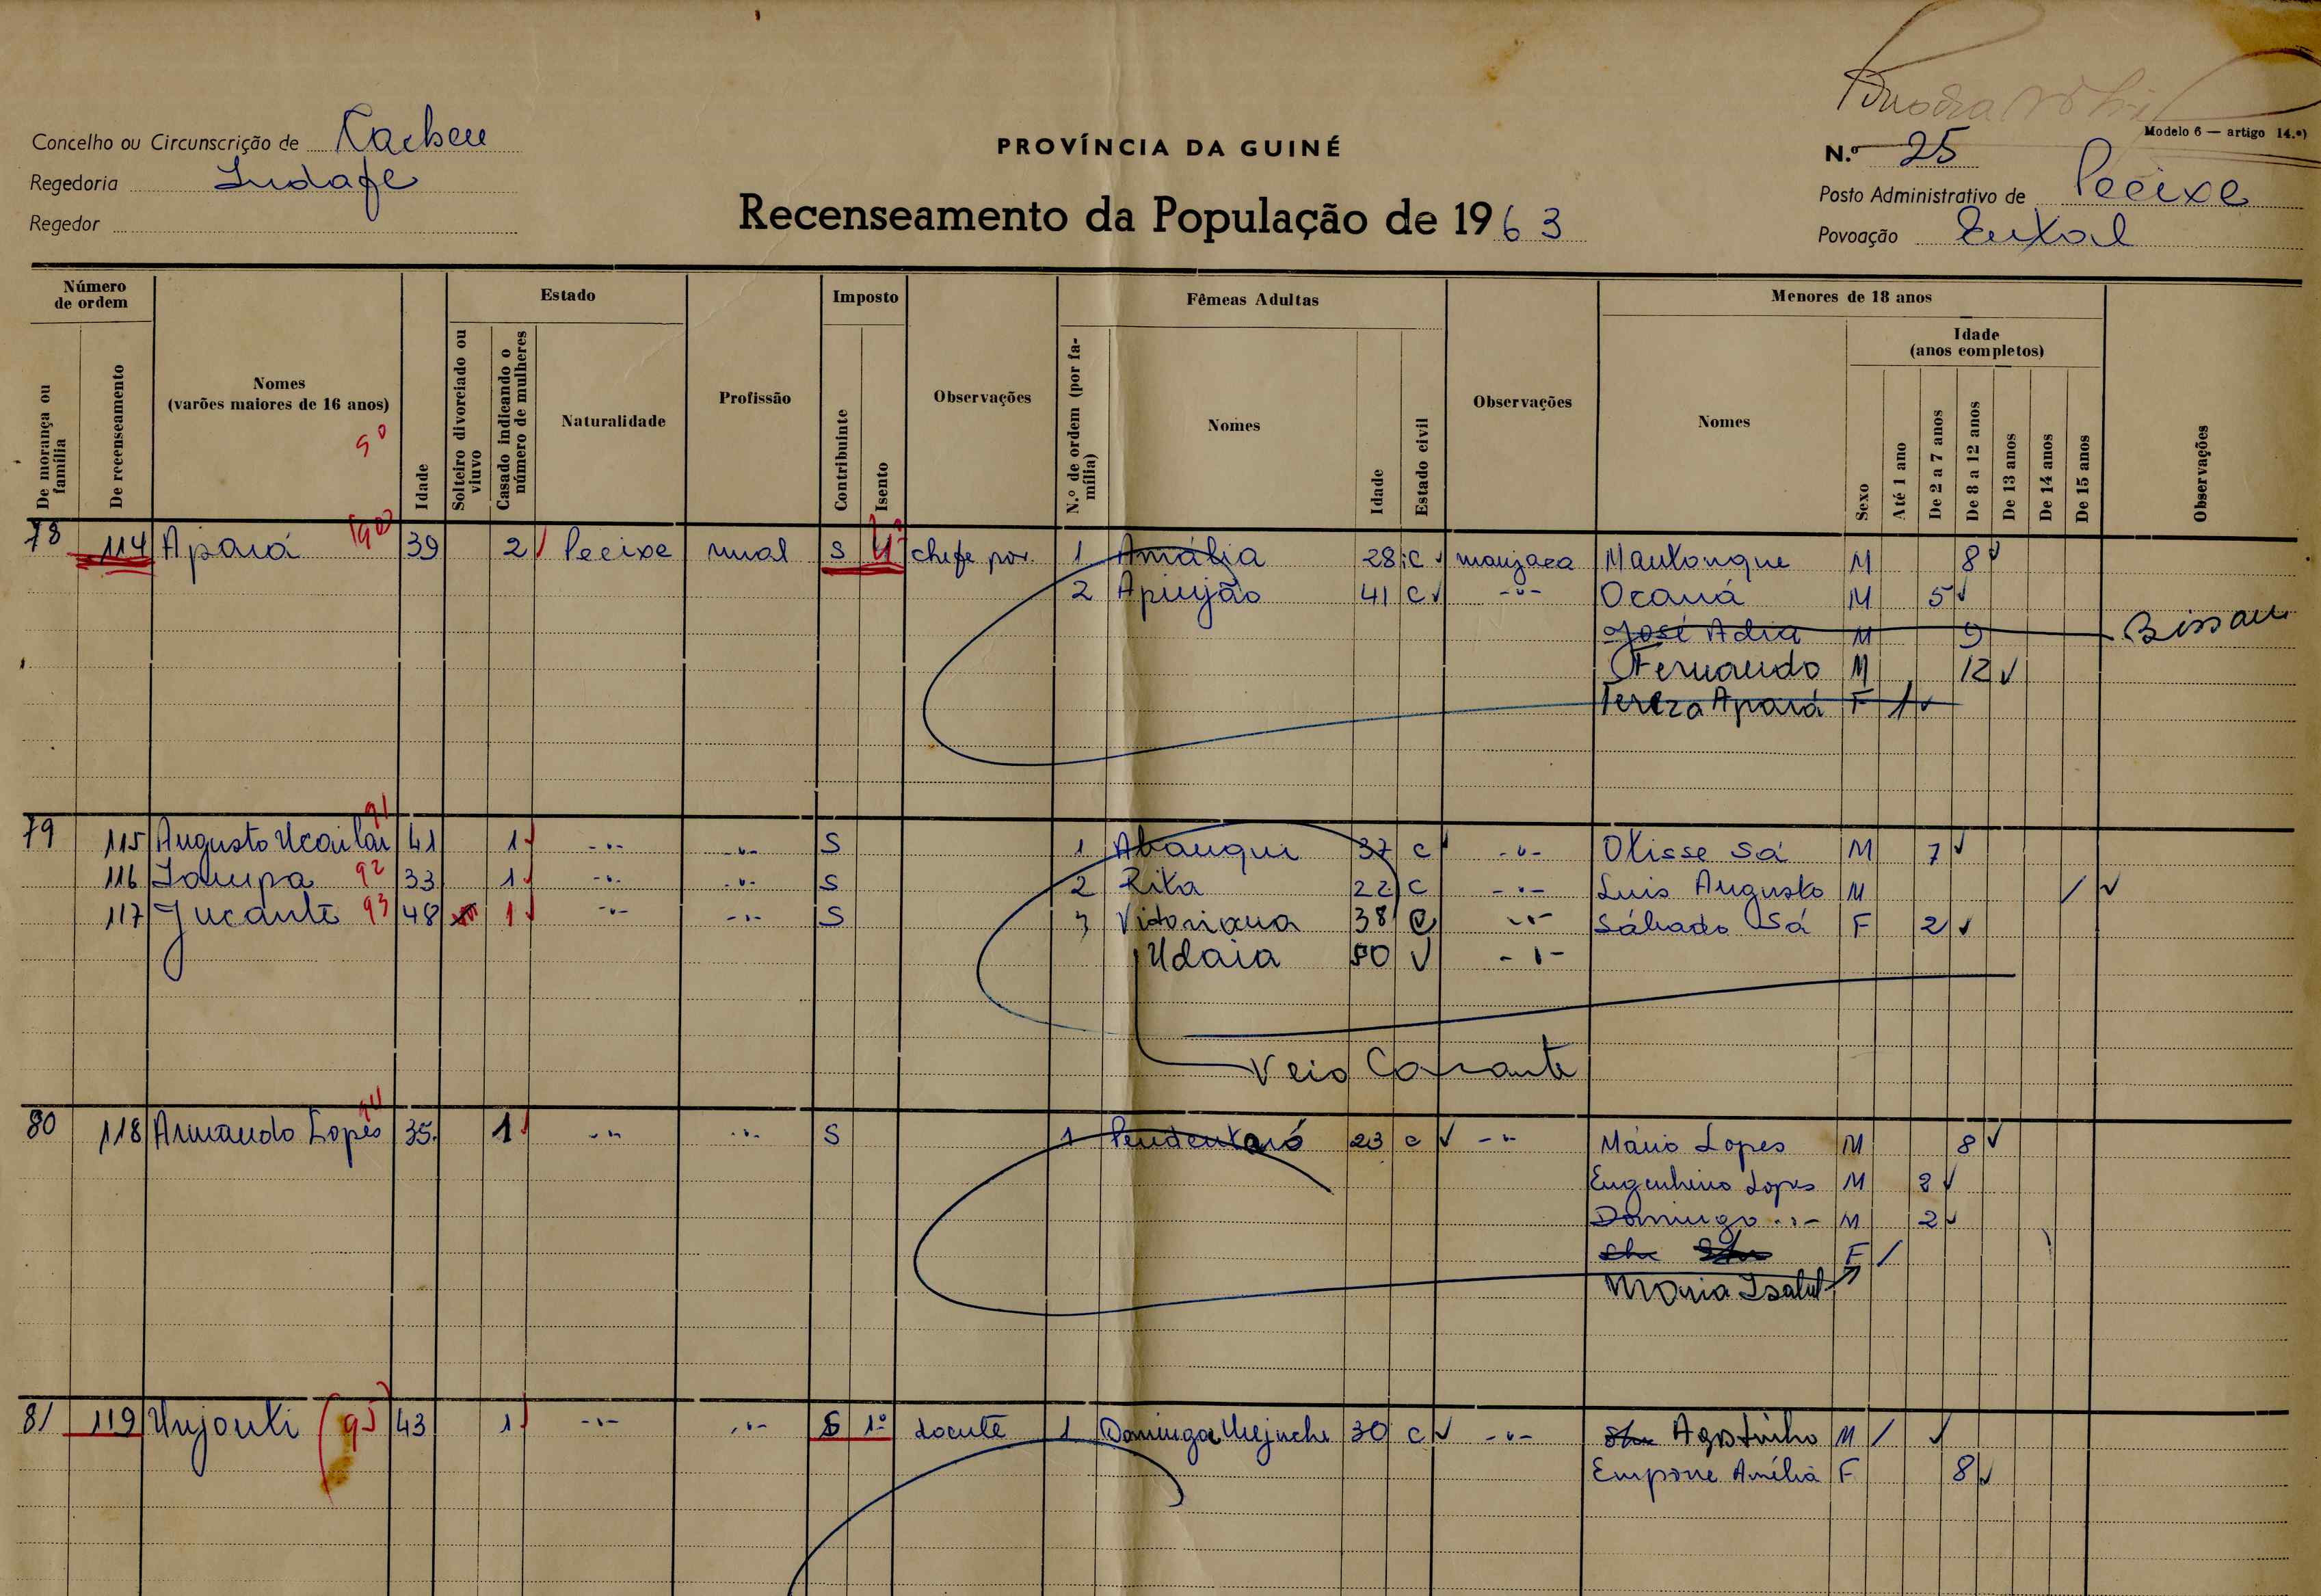 Modelo 6 — artigo 14.º)
Concelho ou Circunscrição de Cacheu
PROVÍNCIA DA GUINÉ
N.º 25
Regedoria
Posto Administrativo de Pecixe
Regedor
Recenseamento da População de 1963
Povoação
Número de ordem
Estado
Imposto
Fêmeas Adultas
Menores de 18 anos
De morança ou família
De recenseamento
Nomes (varões maiores de 16 anos)
Idade
Solteiro divorciado ou viuvo
Casado indicando o número de mulheres
Naturalidade
Profissão
Contribuinte
Isento
Observações
N.º de ordem (por família)
Nomes
Idade
Estado civil
Observações
Nomes
Sexo
Idade (anos completos)
Até 1 ano
De 2 a 7 anos
De 8 a 12 anos
De 13 anos
De 14 anos
De 15 anos
Observações
78 114 Apará 90 39 2 Pecixe rural S chefe pov. 1 Amália 28 C manjaca M 8
2 Apinjão 41 C -"- Ocaná M 5
José Adia M 9 Bissau
Fernando M 12
Tereza Apará F 1
79 115 Augusto 91 41 1 -"- -"- S 1 37 C -"- Olisse Sá M 7
116 92 33 1 -"- -"- S 2 Rita 22 C -"- Luis Augusto M /
117 Jucanté 93 48 1 -"- -"- S 3 Vidoriana 38 C -"- Sábado Sá F 2
Udaia 50 V -"-
Veio
80 118 Armando Lopes 94 35 1 -"- -"- S 1 23 C -"- Mário Lopes M 8
Lopes M 2
Domingo -"- M 2
F /
Maria Isabel
81 119 95 43 1 -"- -"- S 1º doente 1 Dominga 30 C -"- Agostinho M /
Amélia F 8